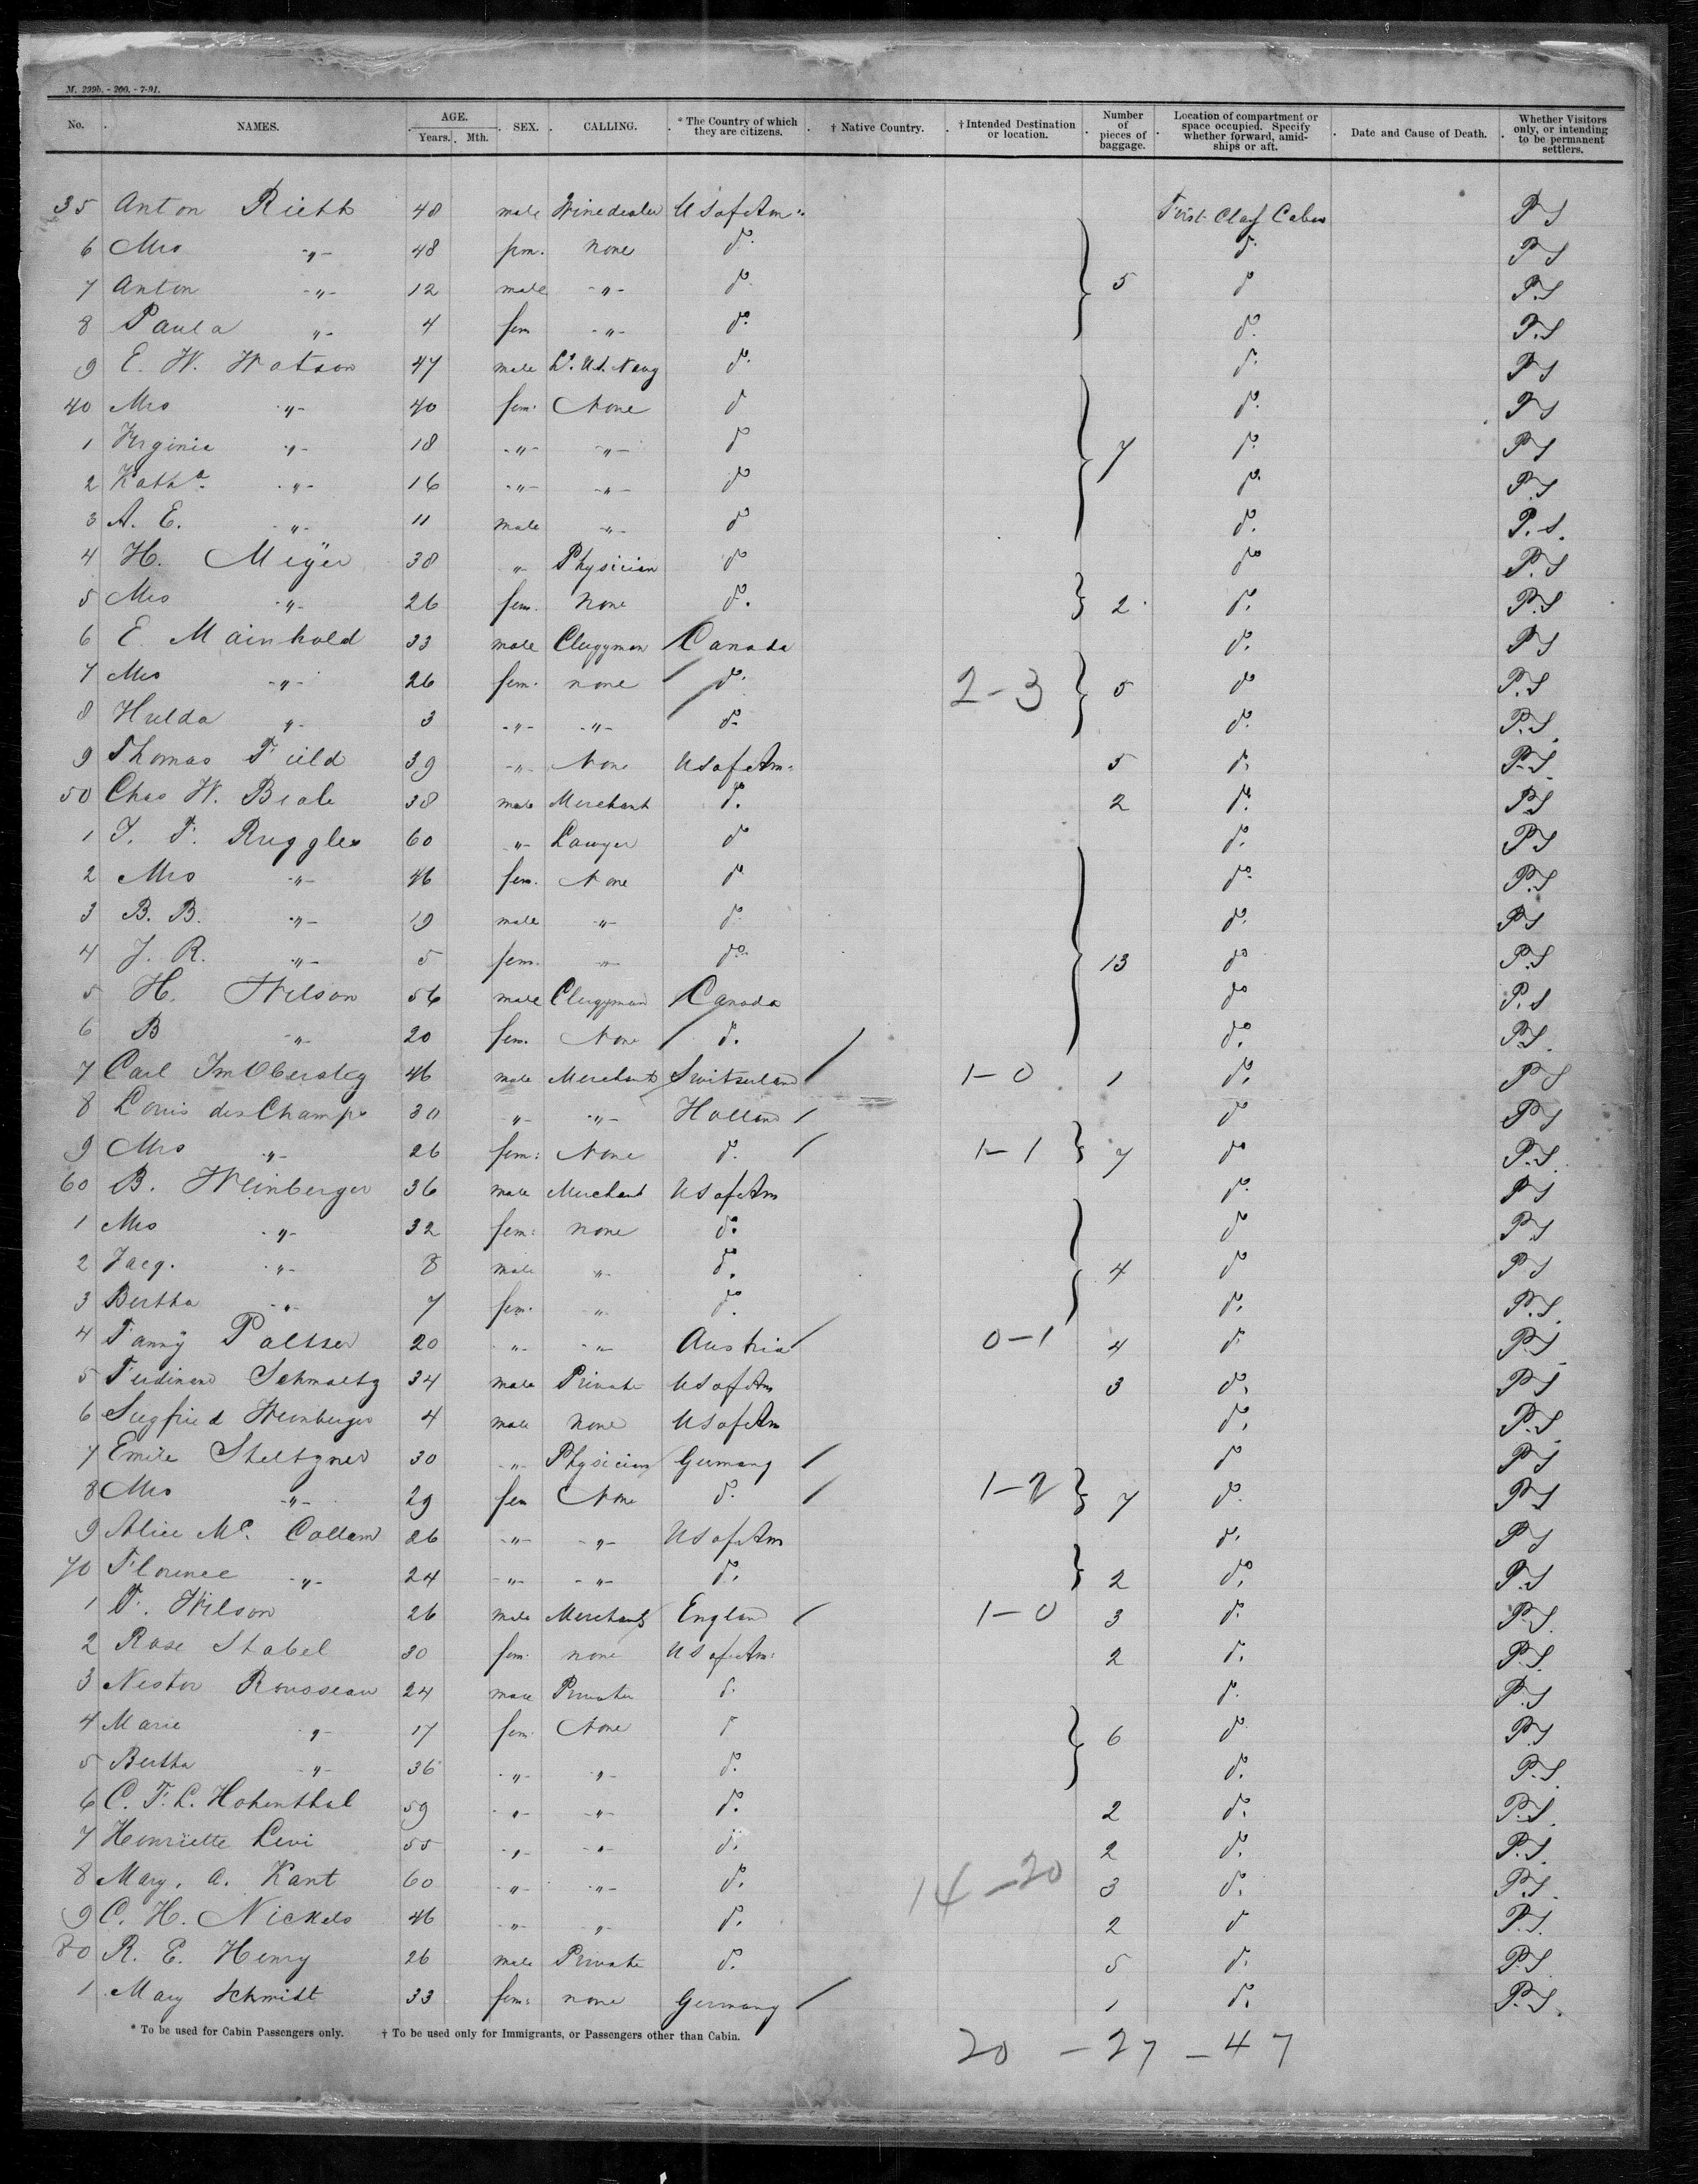 M. 299b. - 200. - 7-91.
No. NAMES. AGE. Years. Mth. SEX. CALLING. * The Country of which they are citizens. † Native Country. † Intended Destination or location. Number of pieces of baggage. Location of compartment or space occupied. Specify whether forward, amidships or aft. Date and Cause of Death. Whether Visitors only, or intending to be permanent settlers.
35 Anton Rieth 48 male Winedealer U S of Am. First Class Cabin P S
6 Mrs -"- 48 fem. none do. do. P S
7 Anton -"- 12 male -"- do. 5 do P.S
8 Paula "- 4 fem -"- do. do. P.S
9 E. W. Watson 47 male Lt. U.S. Navy do. do. P S
40 Mrs -"- 40 fem. None do do. P S
1 Virginia -"- 18 -"- -"- do 7 do. P S
2 Katha. -"- 16 -"- -"- do do. P.S
3 A. E. -"- 11 male -"- do do. P.S.
4 H. Meÿer 38 "- Physician do do P.S
5 Mrs -"- 26 fem. None do. 2 do. P.S
6 E. Mainhold 33 male Clergyman Canada do. P S
7 Mrs -"- 26 fem. none do. 2-3 5 do P.S
8 Hulda "- 3 -"- -"- do. do. P.S.
9 Thomas Field 39 -"- None U S of Am. 5 do. P.S.
50 Chas W. Beale 38 male Merchant do. 2 do. P.S
1 T. F. Ruggles 60 "- Lawyer do do. P.S
2 Mrs -"- 46 fem. None do do. P.S
3 B. B. -"- 19 male -"- do. do. P S
4 J. R. -"- 5 fem. -"- do. 13 do P.S
5 H. Wilson 56 male Clergyman Canada do P.S
6 B -"- 20 fem. None do. do. P.S.
7 Carl ImObersteg 46 male Merchant Switserland 1-0 1 do. P S
8 Louis des Champs 30 -"- -"- Holland do P S
9 Mrs -"- 26 fem: None do. 1-1 7 do P.S.
60 B. Weinberger 36 male Merchant U S of Am do. P S
1 Mrs -"- 32 fem: none do. do P.S
2 Jacq. -"- 8 male "- do. 4 do P S
3 Bertha -"- 7 fem. "- do. do. P.S.
4 Fannÿ Paltser 20 -"- -"- Austria 0-1 4 do P.S.
5 Ferdinand Schmaltz 34 male Private U S of Am 3 do. P S
6 Siegfried Weinberger 4 male none U S of Am do. P.S.
7 Emile Steltzner 30 -"- Physician Germany do P S
8 Mrs -"- 29 fem None do. 1-2 7 do. P S
9 Alice Mc. Collam 26 -"- -"- U S of Am do. P S
70 Florence -"- 24 -"- -"- do. 2 do. P.S
1 F. Wilson 26 male Merchant England 1-0 3 do. P.S.
2 Rose Stabel 30 fem. none U S of Am: 2 do. P.S.
3 Nestor Rousseau 24 male Private do. do. P.S
4 Marie -"- 17 fem. None do 6 do. P.S
5 Bertha -"- 36 -"- -"- do. do. P.S.
6 C. F. L. Hohenthal 59 -"- -"- do. 2 do. P.S.
7 Henriette Levi 55 -"- -"- do. 2 do. P.S.
8 Mary. A. Kant 60 -"- -"- do. 14-20 3 do. P.S.
9 C. H. Nickels 46 -"- -"- do. 2 do P.S.
80 R. E. Henry 26 male Private do. 5 do. P.S.
1 Mary Schmidt 33 fem: none Germany 1 do. P.S.
* To be used for Cabin Passengers only. † To be used only for Immigrants, or Passengers other than Cabin.
20 - 27 - 47